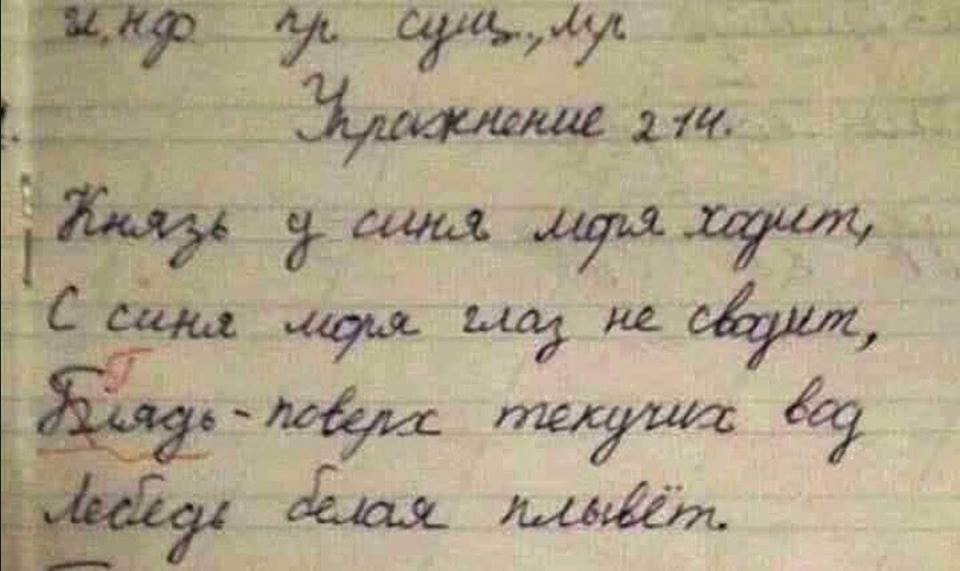 инф гр сущ., мр
Упражнение 214.
Князь у синя моря ходит,
С синя моря глаз не сводит,
Г
Блядь - поверх текучих вод
Лебедь белая плывёт.